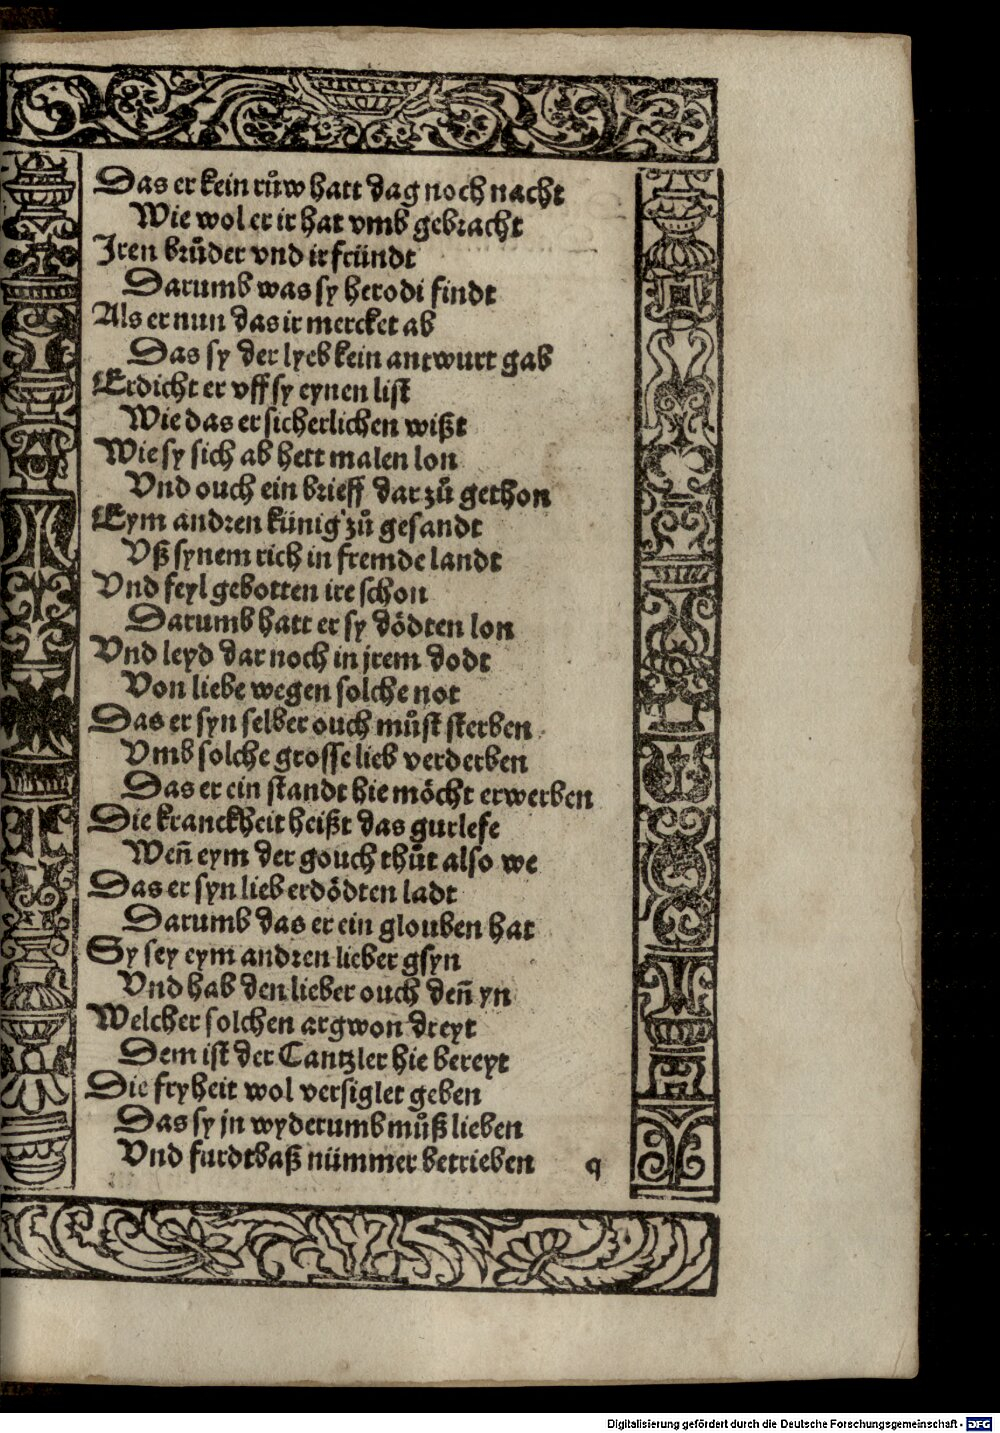 Das er kein růw hatt dag noch nacht
Wie wol er ir hat vmb gebracht
Iren brůder vnd ir fründt
Darumb was sy herodi findt
Als er nun das ir mercket ab
Das sy der lyeb kein antwurt gab
Erdicht er vff sy eynen list
Wie das er sicherlichen wißt
Wie sy sich ab hett malen lon
Vnd ouch ein brieff dar zů gethon
Eym andren künig zů gesandt
Vß synem rich in fremde landt
Vnd feyl gebotten ire schon
Darumb hatt er sy dödten lon
Vnd leyd dar noch in jrem dodt
Von liebe wegen solche not
Das er syn selber ouch můst sterben
Vmb solche grosse lieb verderben
Das er ein standt hie möcht erwerben
Die kranckheit heißt das gurlefe
Weñ eym der gouch thůt also we
Das er syn lieb erdödten ladt
Darumb das er ein glouben hat
Sy sey eym andren lieber gsyn
Vnd hab den lieber ouch deñ yn
Welcher solchen argwon dreyt
Dem ist der Cantzler hie bereyt
Die fryheit wol versiglet geben
Das sy jn wyderumb můß lieben
Vnd furdtbaß nümmer betrieben q
Digitalisierung gefördert durch die Deutsche Forschungsgemeinschaft - DFG